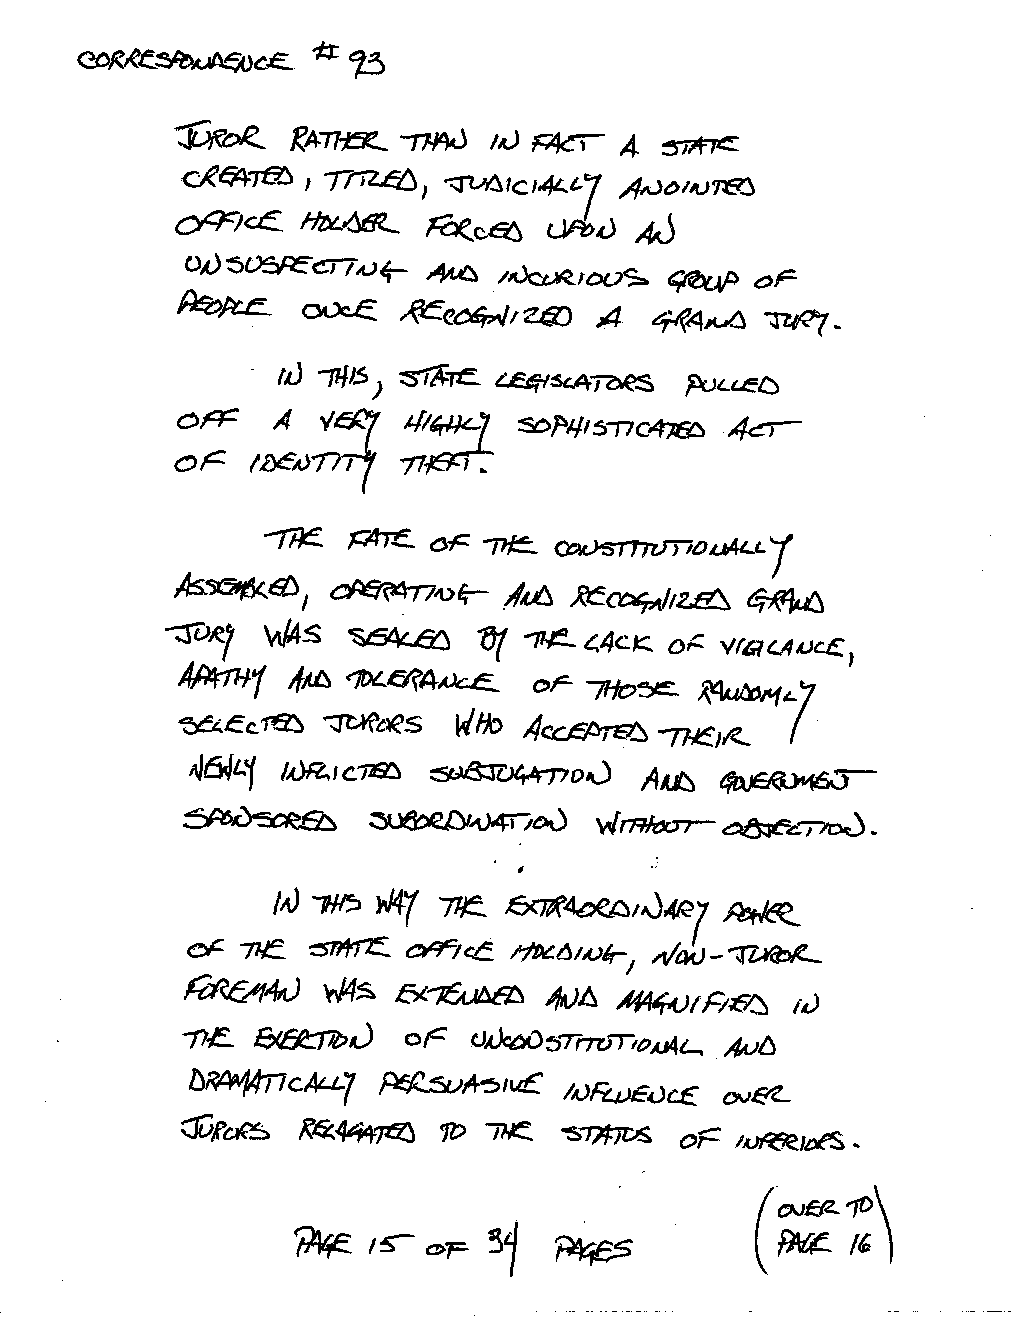 CORRESPONDENCE # 93
JUROR RATHER THAN IN FACT A STATE
CREATED, TITLED, JUDICIALLY ANOINTED
OFFICE HOLDER FORCED UPON AN
UNSUSPECTING AND INCURIOUS GROUP OF
PEOPLE ONCE RECOGNIZED A GRAND JURY.
IN THIS, STATE LEGISLATORS PULLED
OFF A VERY HIGHLY SOPHISTICATED ACT
OF IDENTITY THEFT.
THE FATE OF THE CONSTITUTIONALLY
ASSEMBLED, OPERATING AND RECOGNIZED GRAND
JURY WAS SEALED BY THE LACK OF VIGILANCE,
APATHY AND TOLERANCE OF THOSE RANDOMLY
SELECTED JURORS WHO ACCEPTED THEIR
NEWLY INFLICTED SUBJUGATION AND GOVERNMENT
SPONSORED SUBORDINATION WITHOUT OBJECTION.
IN THIS WAY THE EXTRAORDINARY POWER
OF THE STATE OFFICE HOLDING, NON-JUROR
FOREMAN WAS EXTENDED AND MAGNIFIED IN
THE EXERTION OF UNCONSTITUTIONAL AND
DRAMATICALLY PERSUASIVE INFLUENCE OVER
JURORS RELAGATED TO THE STATUS OF INFERIORS.
PAGE 15 OF 34 PAGES
(OVER TO
PAGE 16)